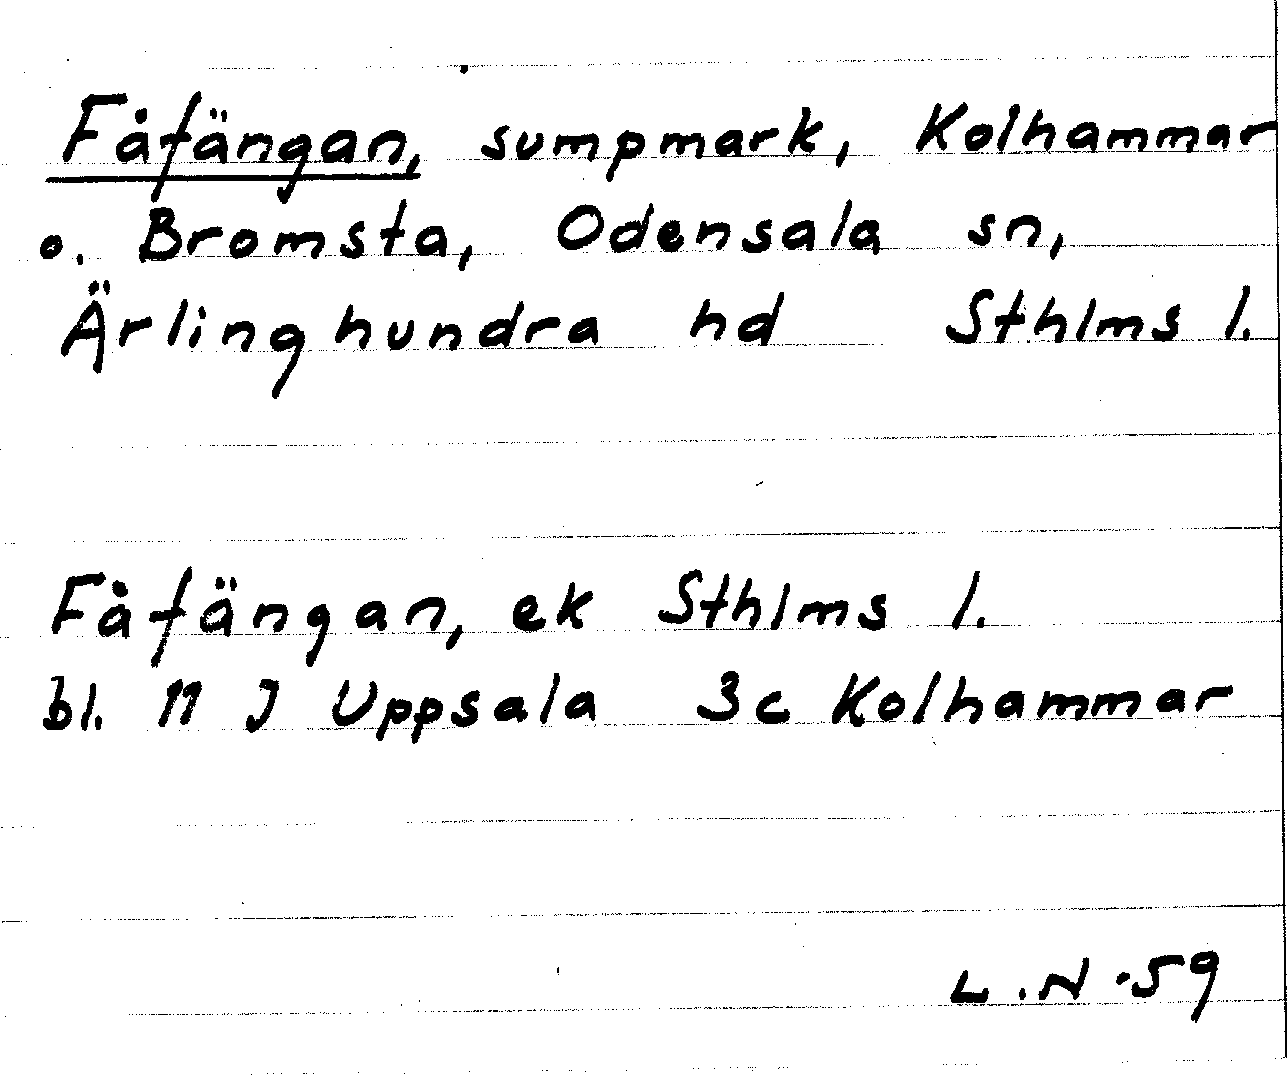 Fåfängan, sumpmark, Kolhammar
o. Bromsta, Odensala sn,
Ärlinghundra hd Sthlms l.
Fåfängan, ek Sthlms l.
bl. 11 J Uppsala 3c Kolhammar
L.N -59